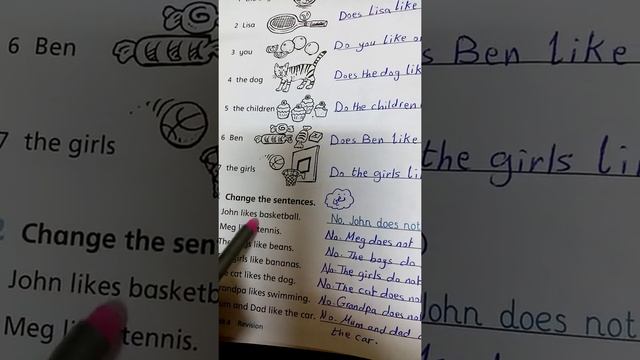 2 Lisa Does Lisa like
3 you Do you like
4 the dog Does the dog lik
5 the children Do the children
6 Ben Does Ben like
the girls Do the girls li
Change the sentences.
John likes basketball. No, John does not
Meg tennis. No. Meg does not
like beans. No. The boys do
girls like bananas. No. The girls do not
cat likes the dog. No. The cat does no
randpa likes swimming. No. Grandpa does no
um and Dad like the car. No. Mum and dad
Revision the car.
6 Ben
s Ben like
7 the girls
the girls li
Change the sen
John likes basketb
John does not
Meg li tennis.